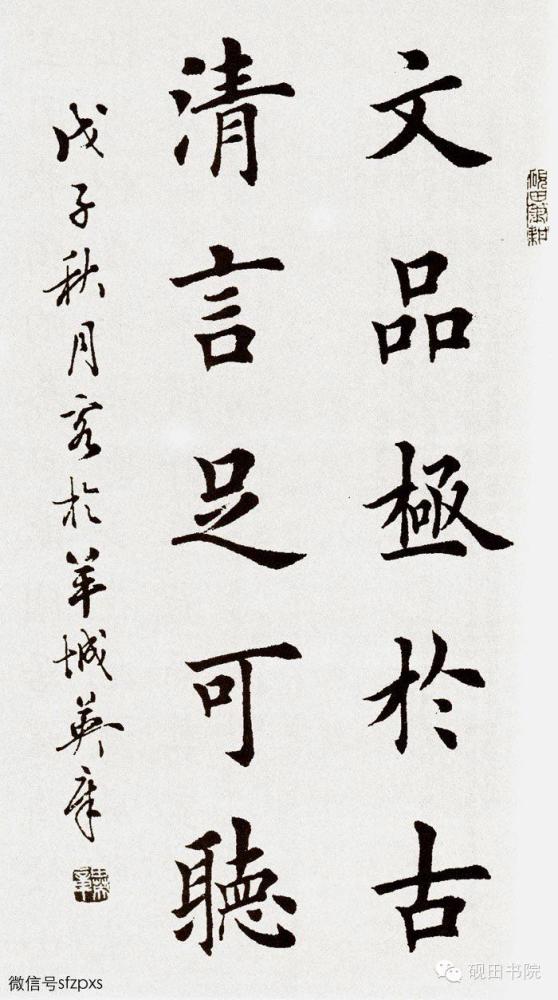 文品極於古
清言足可聽
戊子秋月客於羊城英章
微信号sfzpxs
砚田书院